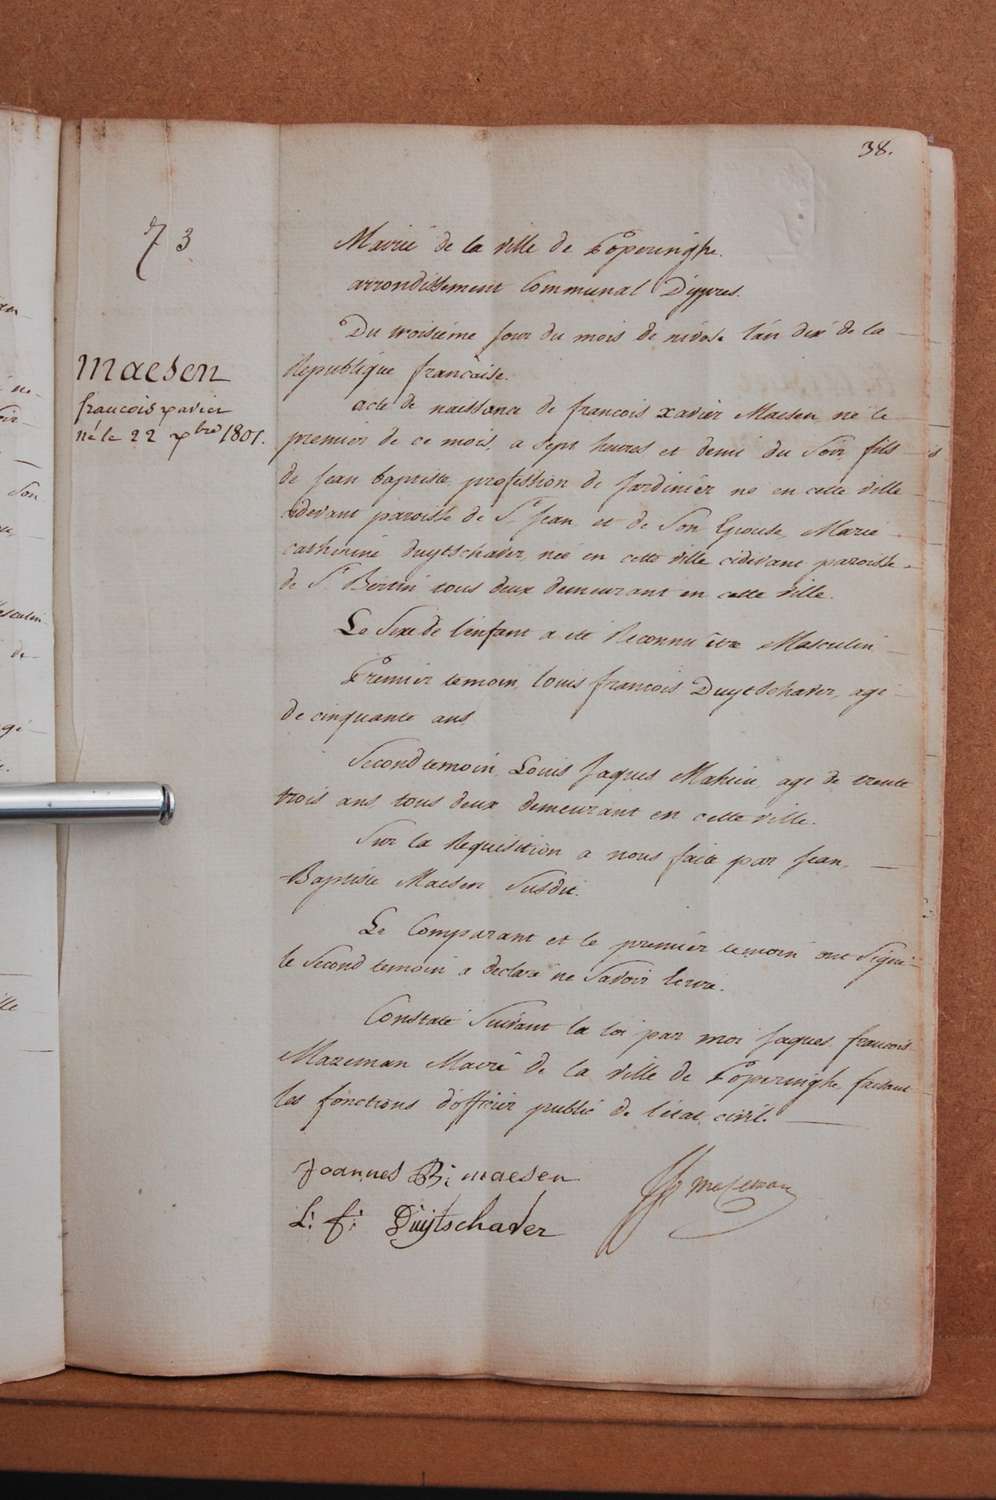 38.
73
Mairie de la ville de Poperinghe.
arrondissement Communal D'ypres.
Du troisieme jour du mois de nivose l'an dix de la
Republique francaise.
maesen
francois xavier
né le 22 xbre 1801.
acte de naissance de francois xavier Maesen né le
premier de ce mois, a sept heures et demi du Soir, fils
de Jean baptiste profession de Jardinier né en cette ville
cidevant paroisse de St Jean et de Son Epouse, Marie
catherine duytschaver, née en cette ville cidevant paroisse
de St Bertin tous deux demeurant en cette ville.
Le Sexe de l'enfant a été Reconnu être Masculin
Premier temoin, louis francois Duytschaver, agé
de cinquante ans
Second temoin, Louis Jaques Mahieu, agé de trente
trois ans tous deux demeurant en cette ville.
Sur la Requisition a nous faite par Jean
Baptiste Maesen Susdit.
Le Comparant et le premier temoin ont Signé
le Second temoin a declaré ne Savoir Ecrire.
Constaté Suivant la loi par moi Jaques francois
Mazeman Maire de la ville de Poperinghe faisant
les fonctions d'officier public de l'etat civil.
Joannes B: maesen
L: f: Duijtschaver